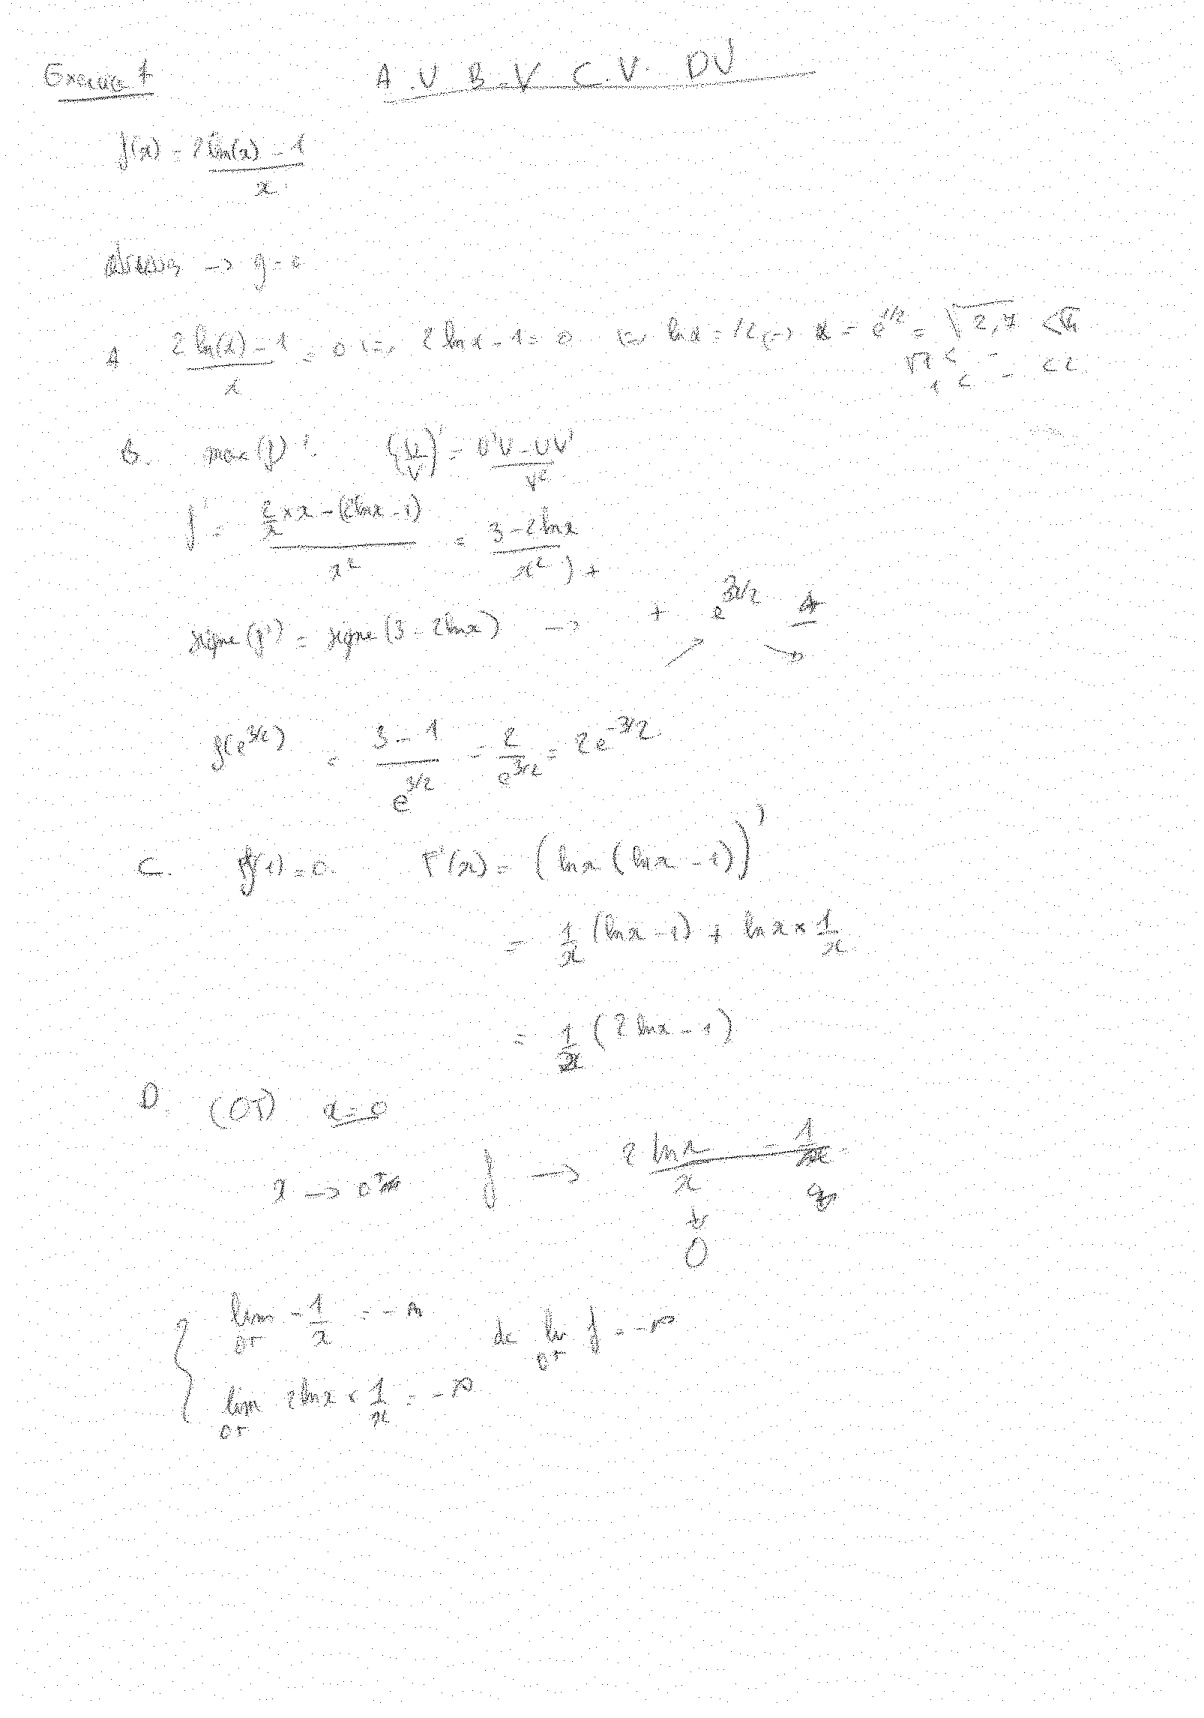 Exercice 1
A.V B.V C.V. DV
f(x) = 2ln(x) - 1
x
→ y = 0
A 2 ln(x) - 1 = 0 <=> 2 ln x - 1 = 0 <=> ln x = 1/2 <=> x = e^1/2 = √2,7 < √4
x
√1 < -
1 < - < 2
B. max(f)'. (U/V)' = U'V - UV'
V²
f' = 2/x × x - (2lnx - 1) = 3 - 2lnx
x² x² ) +
signe(f') = signe(3 - 2lnx) → + e^3/2
f(e^3/2) = 3 - 1 = 2 = 2e^-3/2
e^3/2 e^3/2
C. f(1) = 0. F'(x) = (lnx (lnx - 1))'
= 1/x (lnx - 1) + lnx × 1/x
= 1/x (2lnx - 1)
D. (OT) x = 0
x → 0+ f → 2 lnx/x - 1/x
0
lim - 1/x = -∞
0+
dc lim f = -∞
0+
lim 2lnx × 1/x = -∞
0+